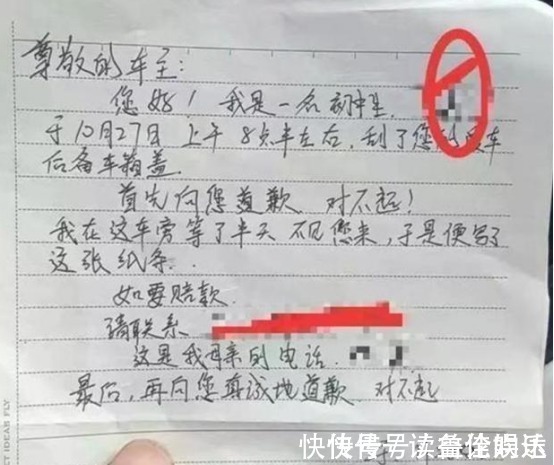 尊敬的车主：
您好！我是一名初中生，
于10月27日上午8点半左右，刮了您的爱车
后备车箱盖
首先向您道歉 对不起！
我在这车旁等了半天 不见您来，于是便写了
这张纸条．
如要赔款
请联系
这是我母亲的电话．
最后，再向您真诚地道歉 对不起
CT IDEAS FLY